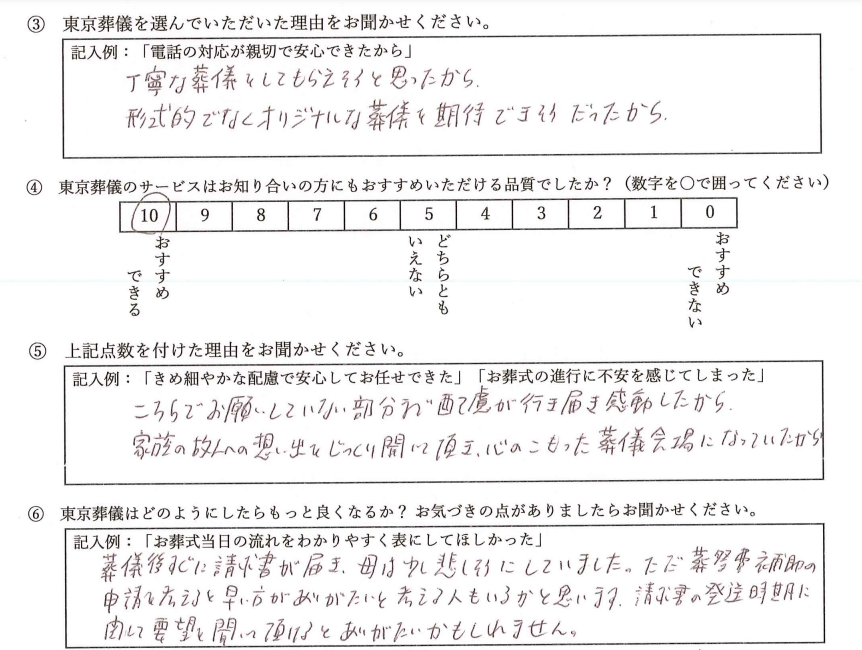 ③ 東京葬儀を選んでいただいた理由をお聞かせください。
記入例：「電話の対応が親切で安心できたから」
丁寧な葬儀をしてもらえそうと思ったから.
形式的でなくオリジナルな葬儀を期待できそうだったから.
④ 東京葬儀のサービスはお知り合いの方にもおすすめいただける品質でしたか？（数字を○で囲ってください）
10 9 8 7 6 5 4 3 2 1 0
おすすめ
できる
どちらとも
いえない
おすすめ
できない
⑤ 上記点数を付けた理由をお聞かせください。
記入例：「きめ細やかな配慮で安心してお任せできた」「お葬式の進行に不安を感じてしまった」
こちらでお願いしていない部分まで配慮が行き届き感動したから.
家族の故人への想い出をじっくり聞いて頂き、心のこもった葬儀会場になっていたから
⑥ 東京葬儀はどのようにしたらもっと良くなるか？ お気づきの点がありましたらお聞かせください。
記入例：「お葬式当日の流れをわかりやすく表にしてほしかった」
葬儀後すぐに請求書が届き、母は少し悲しそうにしていました。ただ葬祭費補助の
申請を考えると早い方がありがたいと考える人もいるかと思います. 請求書の発送時期に
関して要望を聞いて頂けるとありがたいかもしれません。